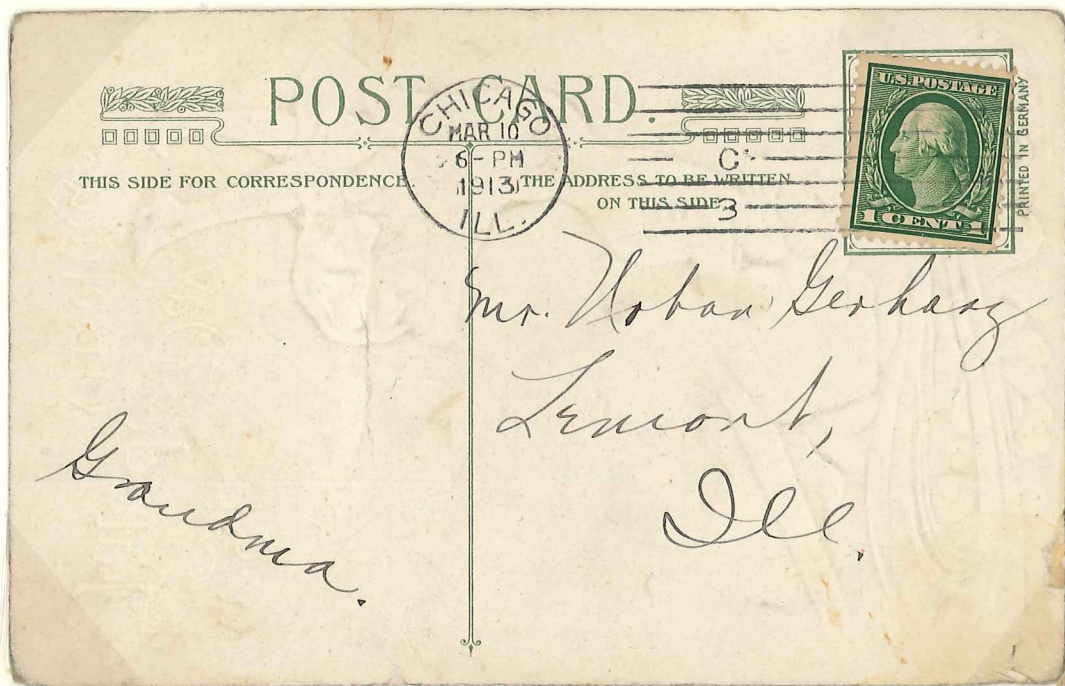 POST CARD.
CHICAGO
MAR 10
6-PM
1913
ILL.
C
3
U.S. POSTAGE
1 CENT 1
PRINTED IN GERMANY
THIS SIDE FOR CORRESPONDENCE.
THE ADDRESS TO BE WRITTEN
ON THIS SIDE.
Mr. Urban Gerharz
Lemont,
Ill.
Grandma.